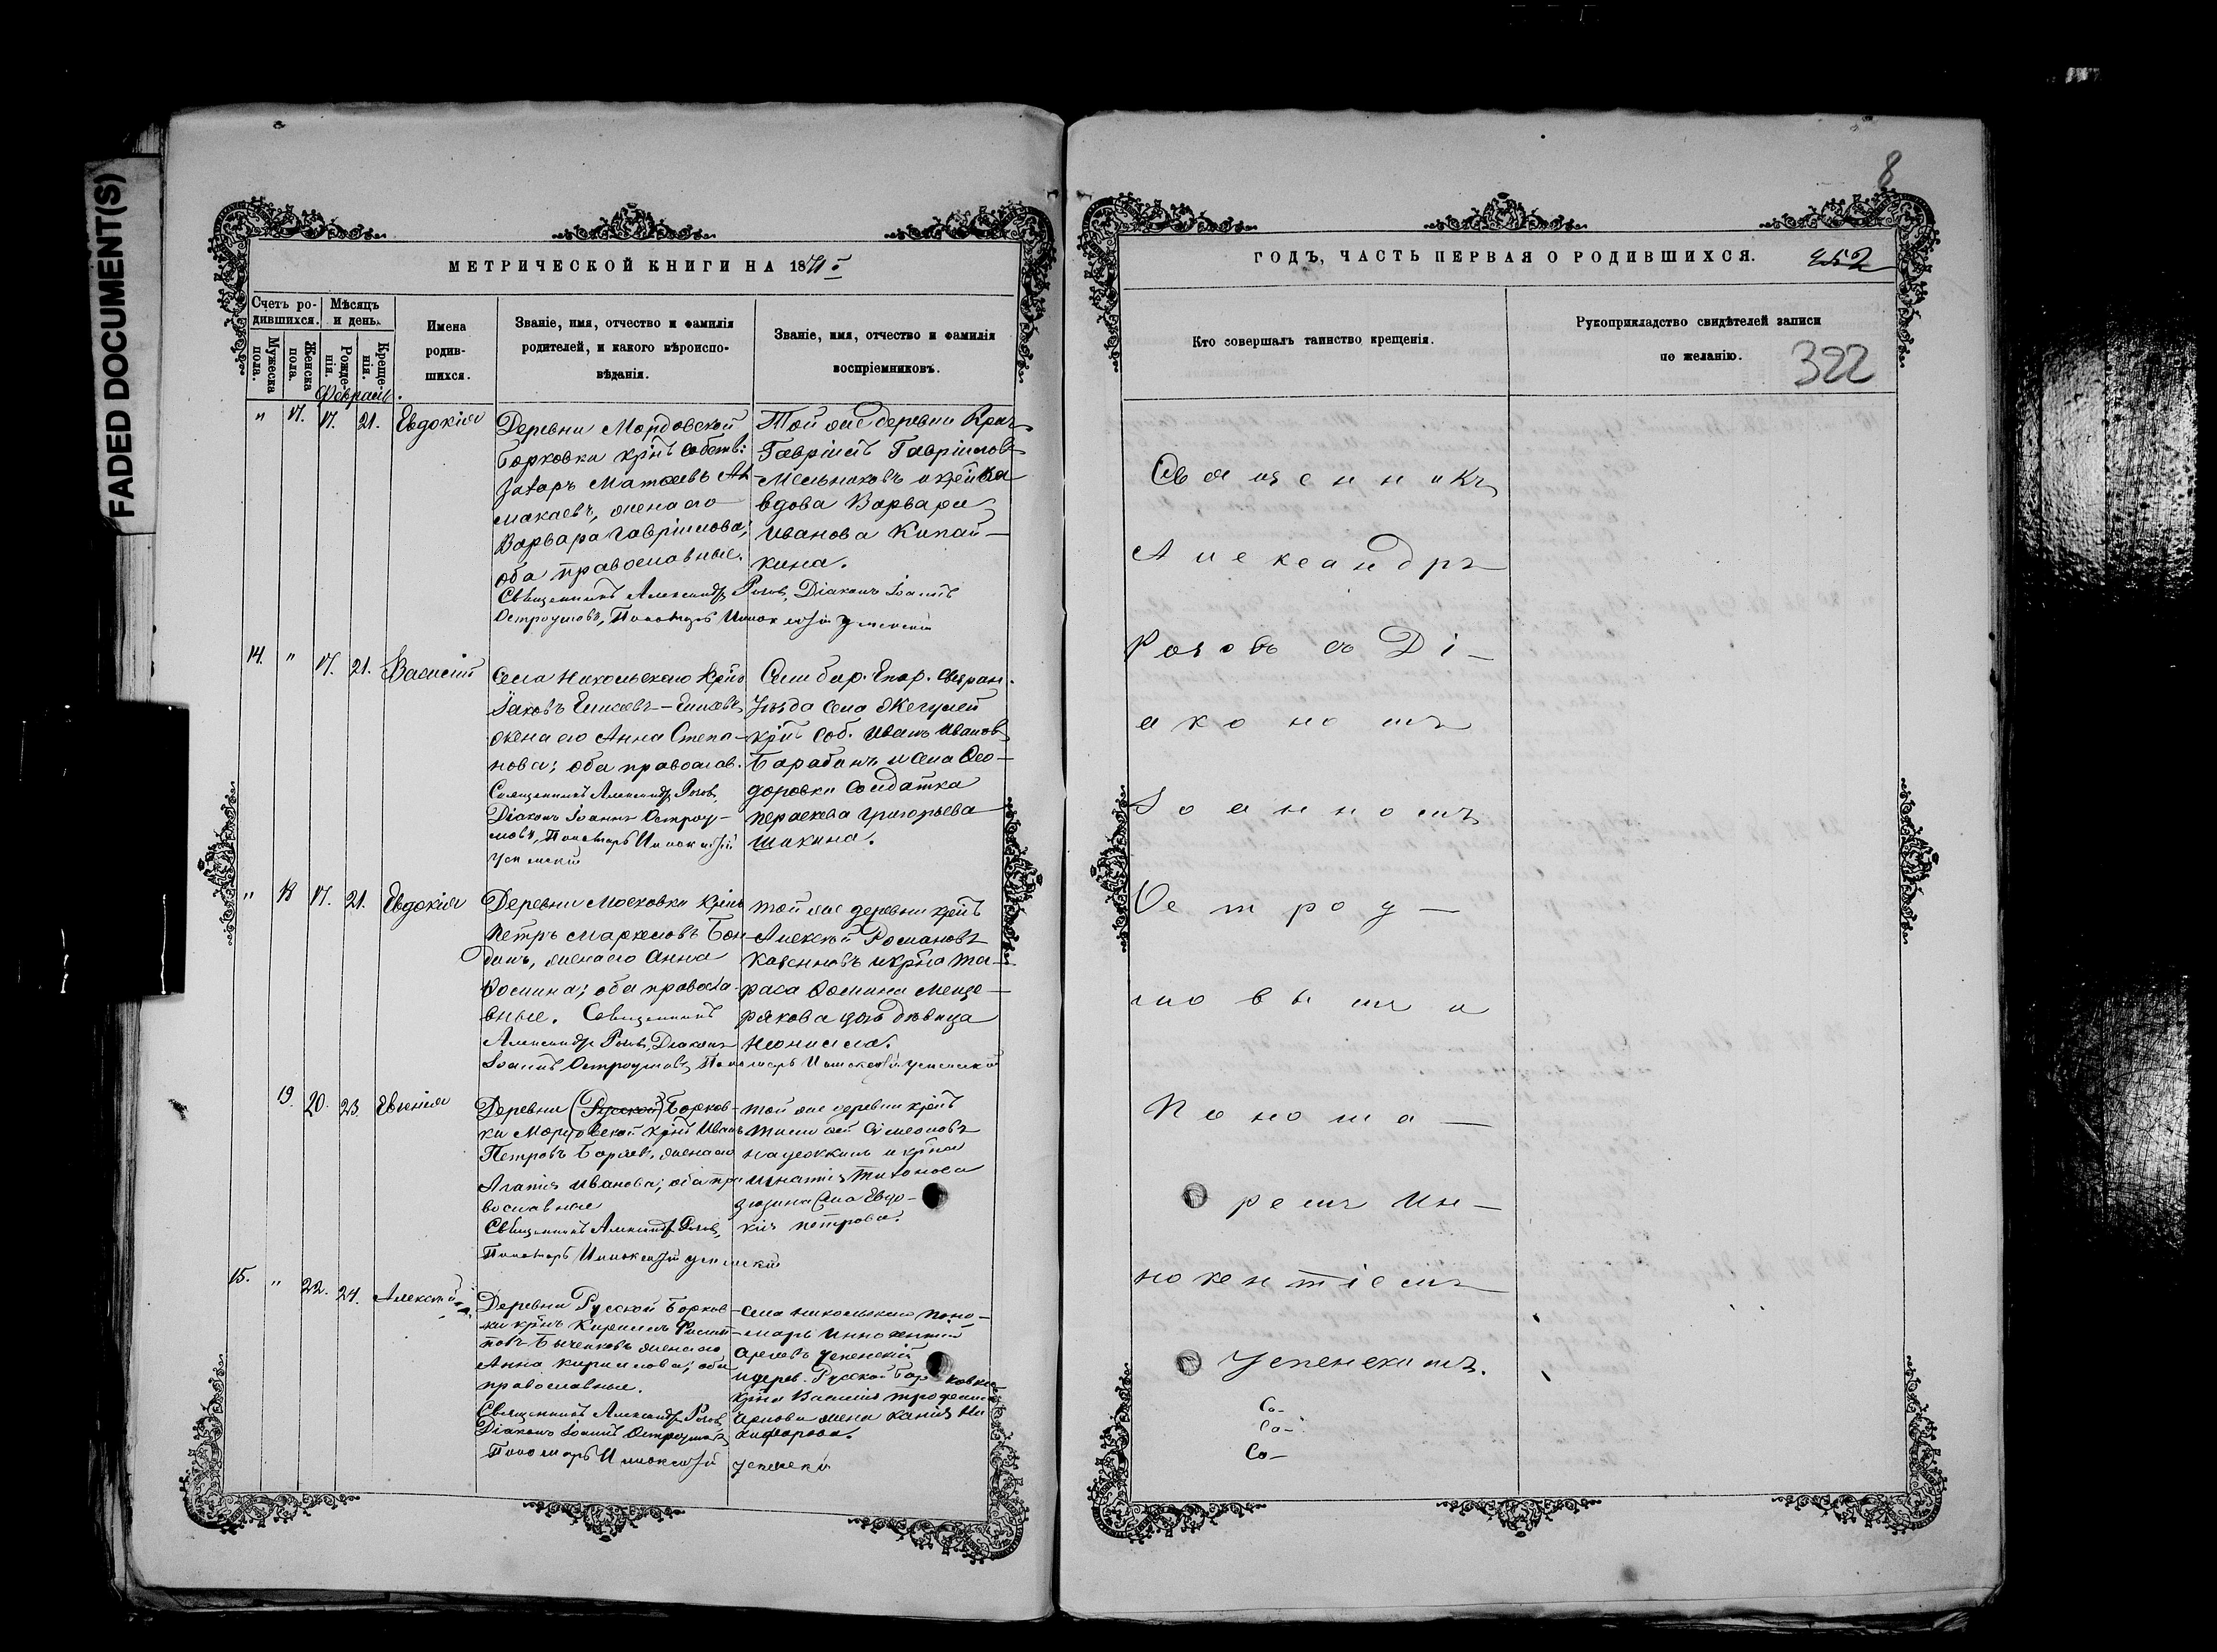 FADED DOCUMENT(S)
8
МЕТРИЧЕСКОЙ КНИГИ НА 1871 г.
Счетъ ро-
дившихся.
Мѣсяцъ
и день.
Мужеска
пола.
Женска
пола.
Рожде-
нія.
Креще-
нія.
Имена
родив-
шихся.
Званіе, имя, отчество и фамилія
родителей, и какого вѣроиспо-
вѣданія.
Званіе, имя, отчество и фамилія
воспріемниковъ.
Февраль.
" 17. 17. 21. Евдокія
Деревни Мордовской
Борковки крн҃ъ собств:
Захаръ Матвѣевъ Ал
макаевъ, жена его
Варвара Гавріилова;
оба православные.
Священникъ Александръ Розовъ, Діаконъ Іоаннъ
Остроумовъ, Пономарь Иннокентій Успенскій
Той же деревни Крн҃ъ
Гавріилъ Гавріиловъ
Мельниковъ и кр҃нка
вдова Варвара
Иванова Кипай-
кина.
14. " 17. 21. Василій
Села Никольскаго Кр҃нъ
Іаковъ Елисѣевъ Елисѣевъ,
жена его Анна Степа-
нова; оба православ.
Священникъ Александръ Розовъ,
Діаконъ Іоаннъ Остроу-
мовъ, Пономарь Иннокентій
Успенскій
Симбир. Губер. Сызран.
Уѣзда села Жегулей
кр҃нъ соб. Иванъ Ивановъ
Барабанъ и села Ѳео-
доровки солдатка
Параскева Григорьева
Шикина.
" 18 17. 21. Евдокія
Деревни Московки кр҃нъ
Петръ Маркеловъ Бон-
динъ, жена его Анна
Ѳомина; оба правосла-
вные. Священникъ
Александръ Розовъ, Діаконъ
Іоаннъ Остроумовъ, Пономарь Иннокентій Успенскій
той же деревни кр҃нъ
Алексѣй Романовъ
и кр҃на Та-
раса Ѳомина Меще-
рякова дочь дѣвица
Неонилла.
19. 20. 23. Евгенія
Деревни (Русской) Борков-
ки Мордовской кр҃нъ Иванъ
Петровъ Боряевъ, жена его
Агапія Иванова; оба пра
вославные
Священникъ Александръ Розовъ,
Пономарь Иннокентій Успенскій
той же деревни кр҃нъ
Тимоѳей Симеоновъ
и кр҃на
Игнатія Тихонова
жена Евдо-
кія Петрова.
15. " 22. 24. Алексѣй
Деревни Русской Борков-
ки кр҃нъ Кириллъ Филип-
повъ Бычковъ жена его
Анна Кириллова; оба
православные.
Священникъ Александръ Розовъ,
Діаконъ Іоаннъ Остроумовъ,
Пономарь Иннокентій Успенскій
села Никольскаго поно-
марь Иннокентій
Успенскій
и дерев. Русской Борковки
кр҃на Василія Трофимова
жена Ксенія Ни
кифорова.
ГОДЪ, ЧАСТЬ ПЕРВАЯ О РОДИВШИХСЯ.
252
Кто совершалъ таинство крещенія.
Рукоприкладство свидѣтелей записи
по желанію.
322
Священникъ
Александръ
Розовъ съ Ді-
акономъ
Іоанномъ
Остроу-
мовымъ и
Понома-
ремъ Ин-
нокентіемъ
Успенскимъ.
Со-
Со-
Со-